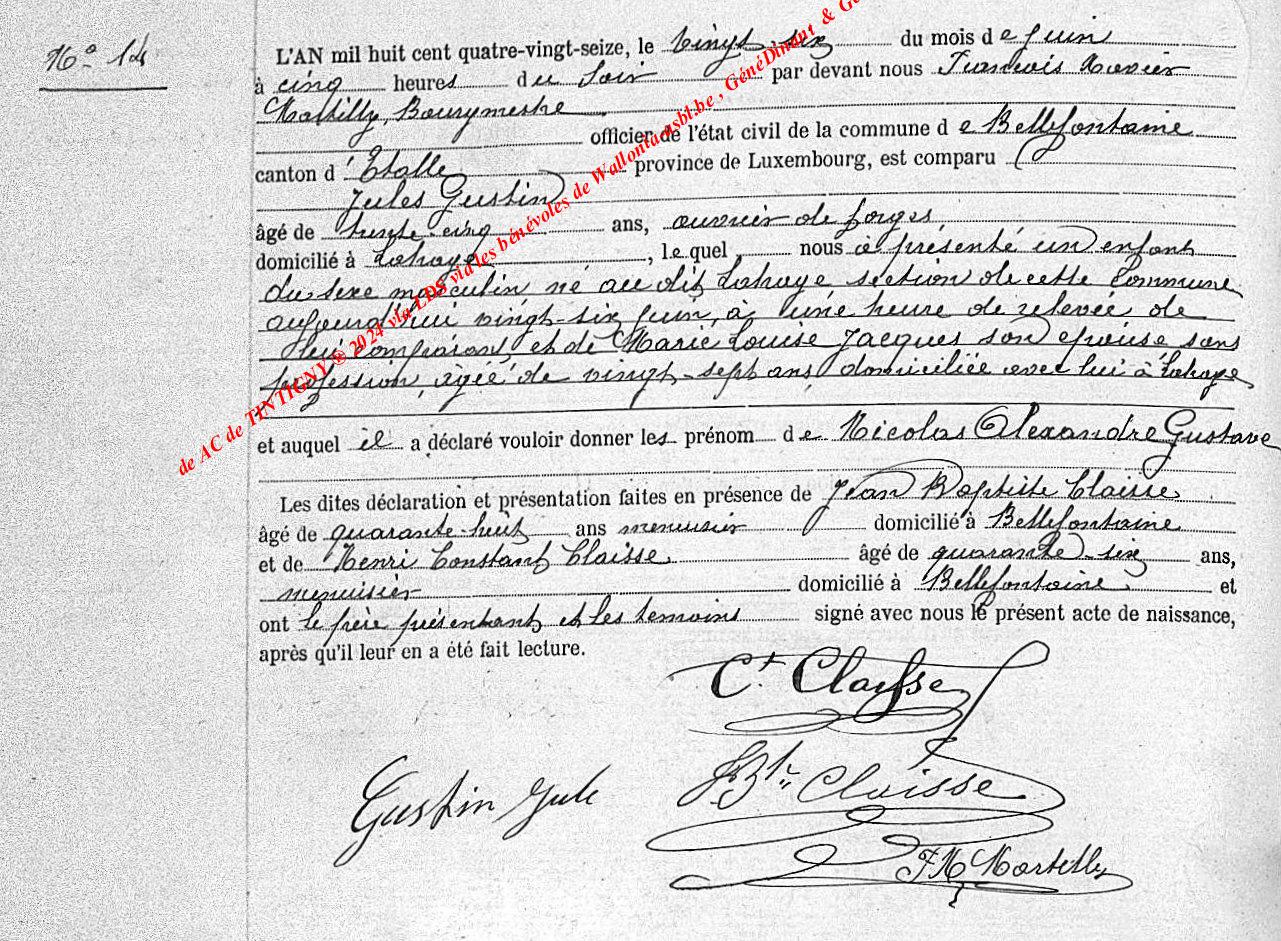 No 14
L'AN mil huit cent quatre-vingt-seize, le vingt six du mois de Juin
à cinq heures du Soir par devant nous François Xavier
Martilly, Bourgmestre
officier de l'état civil de la commune de Bellefontaine
canton d'Etalle province de Luxembourg, est comparu
Jules Gustin
âgé de trente-cinq ans, ouvrier de forges
domicilié à Lahage, lequel, nous a présenté un enfant
du sexe masculin né au dit Lahage section de cette commune
aujourd'hui vingt-six Juin, à une heure de relevée de
lui comparant, et de Marie Louise Jacques son épouse sans
profession, âgée de vingt-sept ans domiciliée avec lui à Lahage
et auquel il a déclaré vouloir donner les prénom de Nicolas Alexandre Gustave
Les dites déclaration et présentation faites en présence de Jean Baptiste Claisse
âgé de quarante-huit ans menuisier domicilié à Bellefontaine
et de Henri Constant Claisse âgé de quarante-six ans,
menuisier domicilié à Bellefontaine et
ont le père présentant et les témoins signé avec nous le présent acte de naissance,
après qu'il leur en a été fait lecture.
Ct. Claisse
JBte Claisse
Gustin Jule
FX Martilly
de AC de TINTIGNY ® 2024 via LDS via les bénévoles de Wallontaasbl.be , GénéDinant & Gé